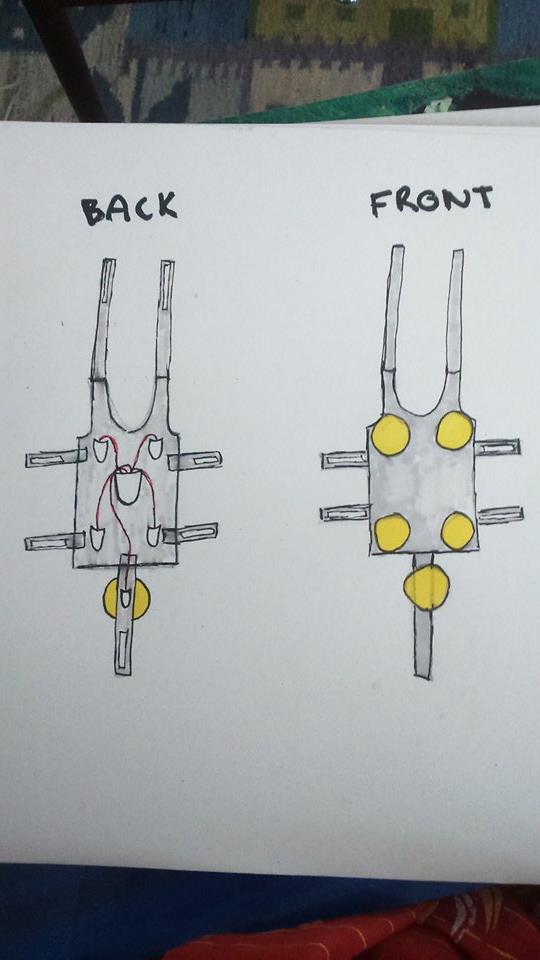 BACK
FRONT